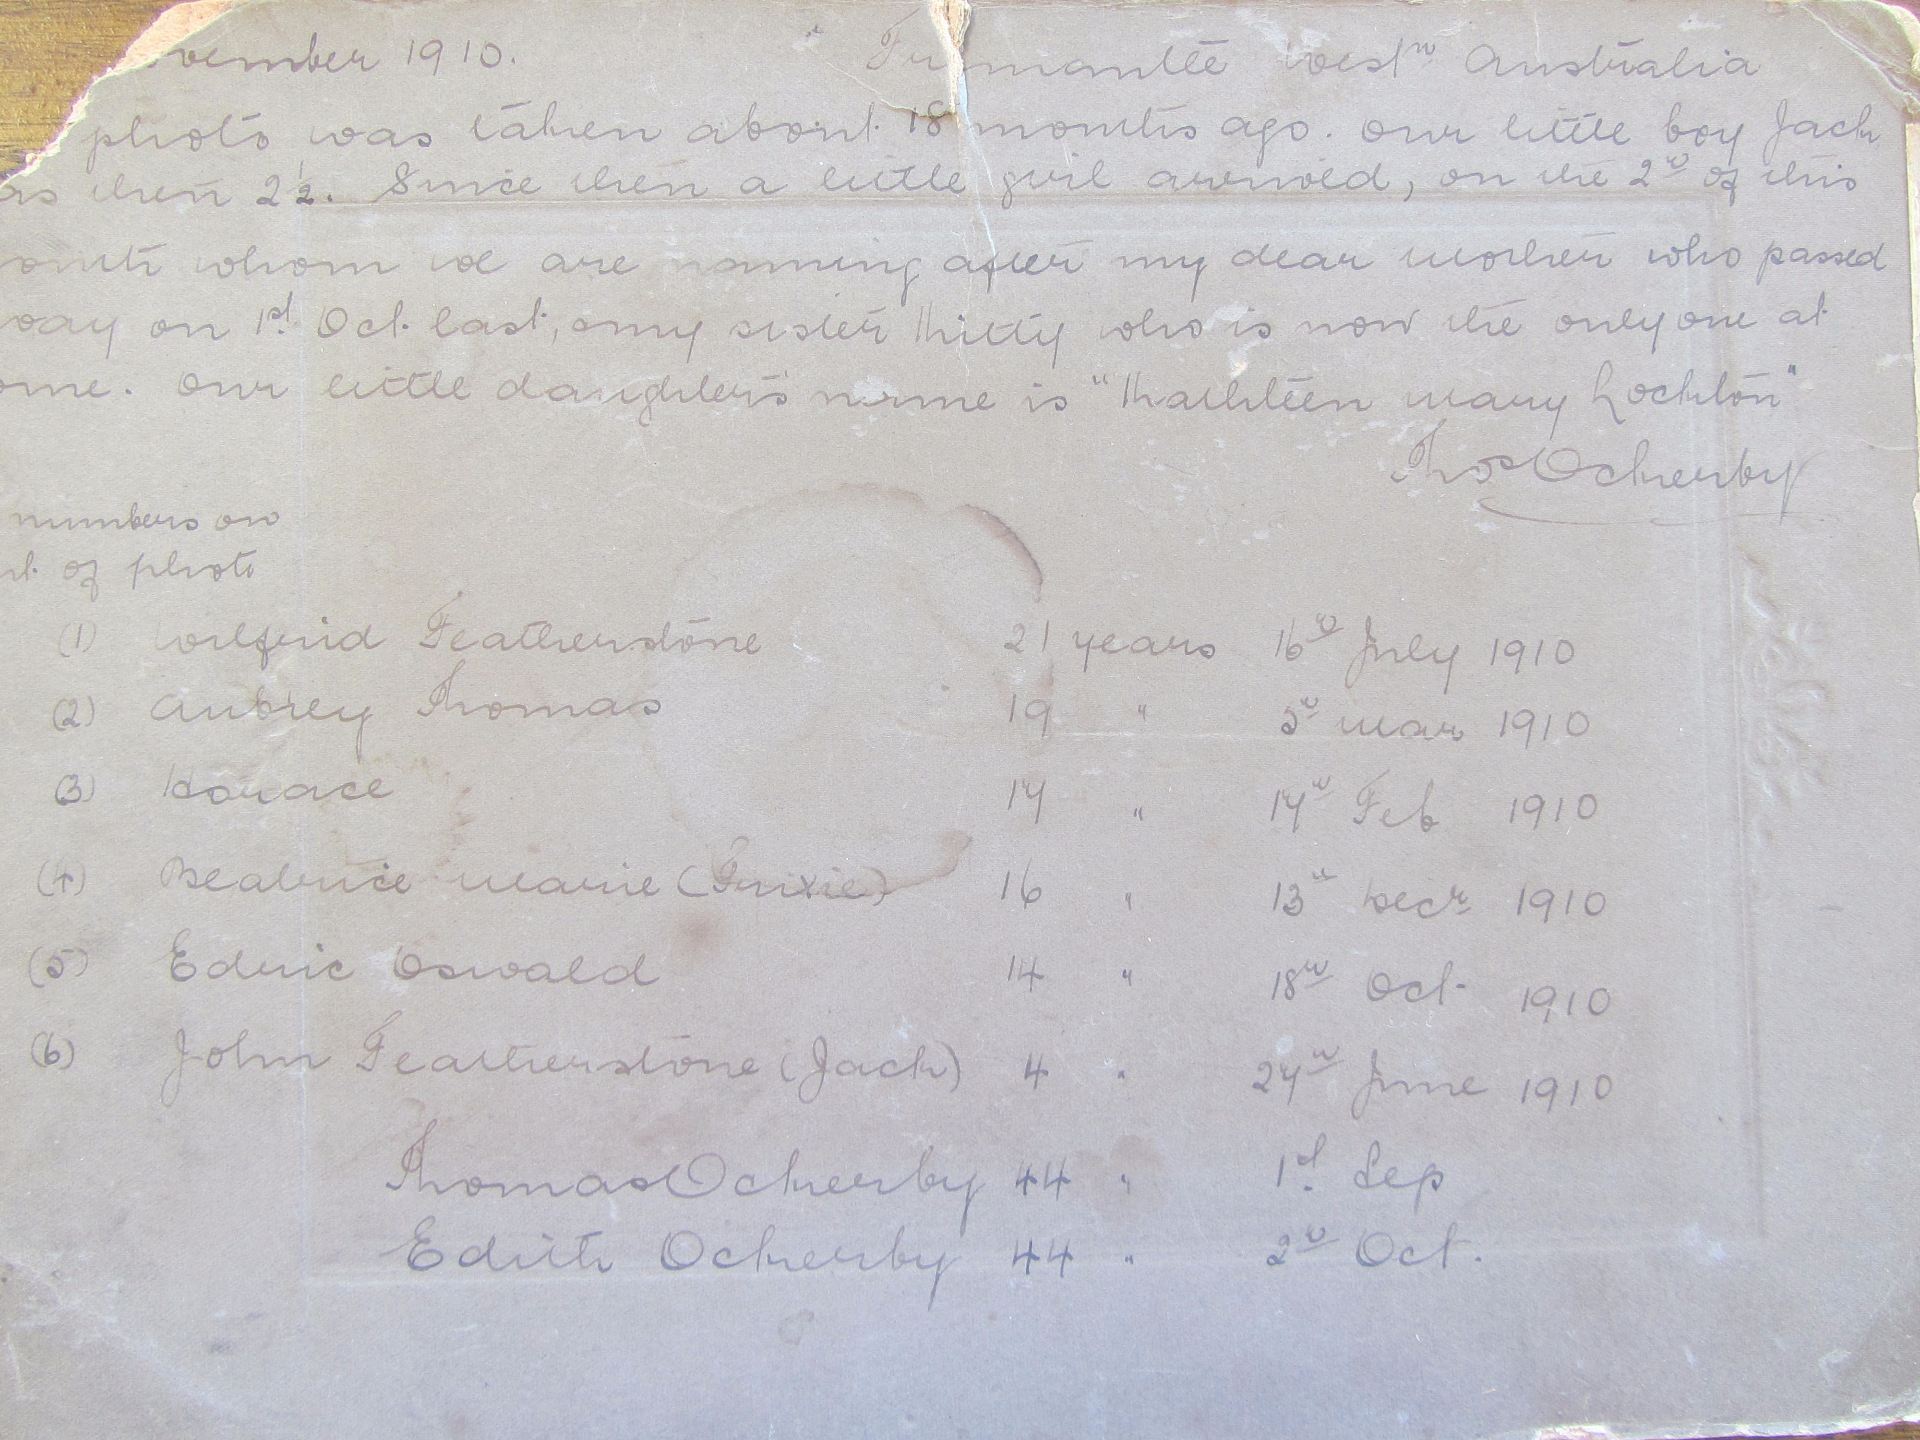 vember 1910. Fremantle West<sup>n</sup> Australia
photo was taken about 18 months ago. Our little boy Jack
as then 2½. Since then a little girl arrived, on the 2<sup>nd</sup> of this
onth whom we are naming after my dear mother who passed
way on 1st Oct. last, & my sister Kitty who is now the only one at
ome. Our little daughter's name is "Kathleen Mary Lockton"
Thos Ockerby
numbers on
nt of photo
(1) Wilfrid Featherstone 21 years 16<sup>th</sup> July 1910
(2) Aubrey Thomas 19 " 5<sup>th</sup> Mar 1910
(3) Horace 17 " 17<sup>th</sup> Feb 1910
(4) Beatrice Marie (Trixie) 16 " 13<sup>th</sup> Decr 1910
(5) Edric Oswald 14 " 18<sup>th</sup> Oct. 1910
(6) John Featherstone (Jack) 4 " 27<sup>th</sup> June 1910
Thomas Ockerby 44 " 1st Sep
Edith Ockerby 44 " 2<sup>nd</sup> Oct.